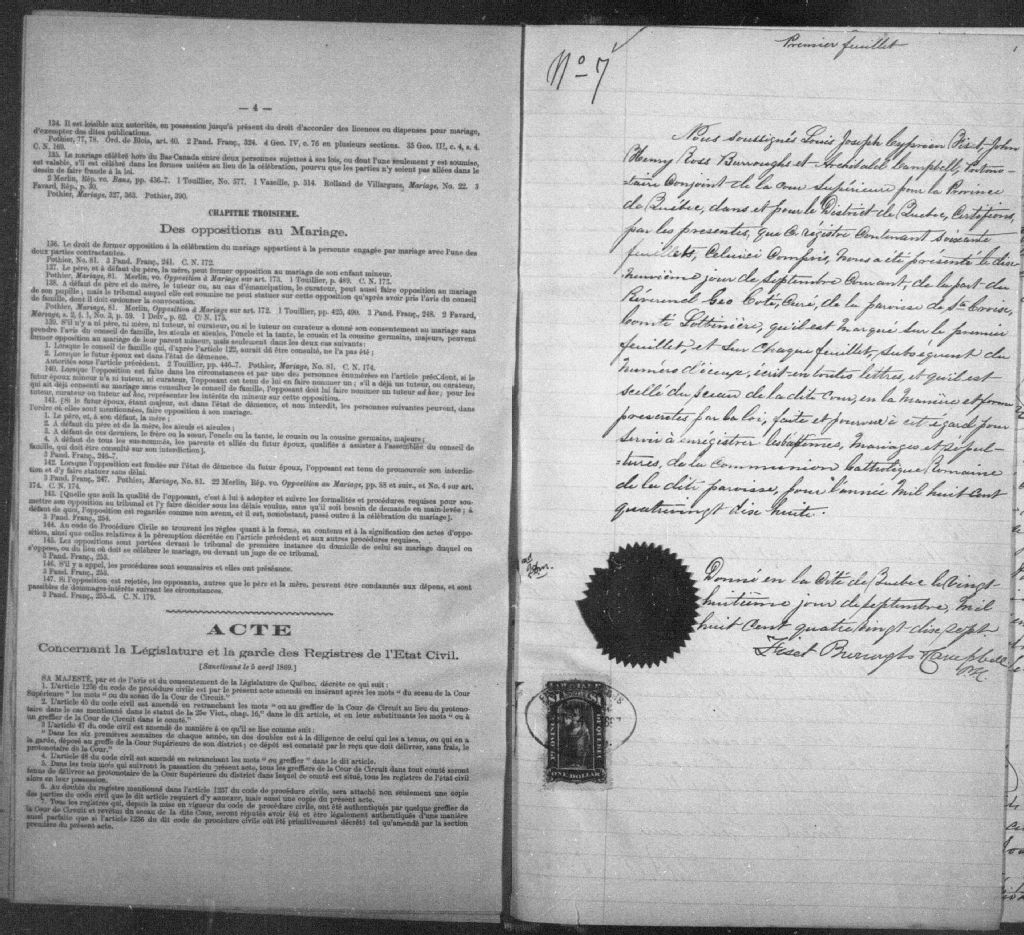 — 4 —
134. Il est loisible aux autorités, en possession jusqu'à présent du droit d'accorder des licences ou dispenses pour mariage,
d'exempter des dites publications.
Pothier, 77, 78. Ord. de Blois, art. 40. 2 Pand. Franç., 324. 4 Geo. IV, c. 76 en plusieurs sections. 35 Geo. III, c. 4, s. 4.
C. N. 169.
135. Le mariage célébré hors du Bas-Canada entre deux personnes sujettes à ses lois, ou dont l'une seulement y est soumise,
est valable, s'il est célébré dans les formes usitées au lieu de la célébration, pourvu que les parties n'y soient pas allées dans le
dessein de faire fraude à la loi.
2 Merlin, Rép. vo. Bans, pp. 436-7. 1 Touillier, No. 577. 1 Vazeille, p. 314. Rolland de Villargues, Mariage, No. 22. 3
Favard, Rép., p. 30.
Pothier, Mariage, 327, 363. Pothier, 390.
CHAPITRE TROISIEME.
Des oppositions au Mariage.
136. Le droit de former opposition à la célébration du mariage appartient à la personne engagée par mariage avec l'une des
deux parties contractantes.
Pothier, No. 81. 3 Pand. Franç., 241. C. N. 172.
137. Le père, et à défaut du père, la mère, peut former opposition au mariage de son enfant mineur.
Pothier, Mariage, 81. Merlin, vo. Opposition à Mariage sur art. 173. 1 Touillier, p. 489. C. N. 173.
138. A défaut de père et de mère, le tuteur ou, au cas d'émancipation, le curateur, peut aussi faire opposition au mariage
de son pupille; mais le tribunal auquel elle est soumise ne peut statuer sur cette opposition qu'après avoir pris l'avis du conseil
de famille, dont il doit ordonner la convocation.
Pothier, Mariage, 81. Merlin, Opposition à Mariage sur art. 172. 1 Touillier, pp. 425, 490. 3 Pand. Franç., 248. 2 Favard,
Mariage, s. 2, § 1, No. 3, p. 59. 1 Delv., p. 62. C. N. 175.
139. S'il n'y a ni père, ni mère, ni tuteur, ni curateur, ou si le tuteur ou curateur a donné son consentement au mariage sans
prendre l'avis du conseil de famille, les aïeuls et aïeules, l'oncle et la tante, le cousin et la cousine germains, majeurs, peuvent
former opposition au mariage de leur parent mineur, mais seulement dans les deux cas suivants:
1. Lorsque le conseil de famille qui, d'après l'article 122, aurait dû être consulté, ne l'a pas été;
2. Lorsque le futur époux est dans l'état de démence.
Autorités sous l'article précédent. 2 Touillier, pp. 446-7. Pothier, Mariage, No. 81. C. N. 174.
140. Lorsque l'opposition est faite dans les circonstances et par une des personnes énumérées en l'article précédent, si le
futur époux mineur n'a ni tuteur, ni curateur, l'opposant est tenu de lui en faire nommer un; s'il a déjà un tuteur, ou curateur,
qui ait déjà consenti au mariage sans consulter le conseil de famille, l'opposant doit lui faire nommer un tuteur ad hoc; pour les
tuteur, curateur ou tuteur ad hoc, représenter les intérêts du mineur sur cette opposition.
141. [Si le futur époux, étant majeur, est dans l'état de démence, et non interdit, les personnes suivantes peuvent, dans
l'ordre où elles sont mentionnées, faire opposition à son mariage.
1. Le père, et, à son défaut, la mère;
2. A défaut du père et de la mère, les aïeuls et aïeules;
3. A défaut de ces derniers, le frère ou la sœur, l'oncle ou la tante, le cousin ou la cousine germains, majeurs;
4. A défaut de tous les sus-nommés, les parents et alliés du futur époux, qualifiés à assister à l'assemblée du conseil de
famille, qui doit être consulté sur son interdiction].
3 Pand. Franç., 246-7.
142. Lorsque l'opposition est fondée sur l'état de démence du futur époux, l'opposant est tenu de promouvoir son interdic-
tion et d'y faire statuer sans délai.
3 Pand. Franç., 247. Pothier, Mariage, No. 81. 22 Merlin, Rép. vo. Opposition au Mariage, pp. 88 et suiv., et No. 4 sur art.
174. C. N. 174.
143. [Quelle que soit la qualité de l'opposant, c'est à lui à adopter et suivre les formalités et procédures requises pour sou-
mettre son opposition au tribunal et l'y faire décider sous les délais voulus, sans qu'il soit besoin de demande en main-levée; à
défaut de quoi, l'opposition est regardée comme non avenue, et il est, nonobstant, passé outre à la célébration du mariage].
3 Pand. Franç., 254.
144. Au code de Procédure Civile se trouvent les règles quant à la forme, au contenu et à la signification des actes d'oppo-
sition, ainsi que celles relatives à la péremption décrétée en l'article précédent et aux autres procédures requises.
145. Les oppositions sont portées devant le tribunal de première instance du domicile de celui au mariage duquel on
s'oppose, ou du lieu où doit se célébrer le mariage, ou devant un juge de ce tribunal.
3 Pand. Franç., 253.
146. S'il y a appel, les procédures sont sommaires et elles ont préséance.
3 Pand. Franç., 255.
147. Si l'opposition est rejetée, les opposants, autres que le père et la mère, peuvent être condamnés aux dépens, et sont
passibles de dommages-intérêts suivant les circonstances.
3 Pand. Franç., 255-6. C. N. 179.
ACTE
Concernant la Législature et la garde des Registres de l'Etat Civil.
[Sanctionné le 5 avril 1869.]
SA MAJESTÉ, par et de l'avis et du consentement de la Législature de Québec, décrète ce qui suit:
1. L'article 1236 du code de procédure civile est par le présent acte amendé en insérant après les mots " du sceau de la Cour
Supérieure " les mots " ou du sceau de la Cour de Circuit."
2. L'article 45 du code civil est amendé en retranchant les mots " ou au greffier de la Cour de Circuit au lieu du protono-
taire dans le cas mentionné dans le statut de la 25e Vict., chap. 16," dans le dit article, et en leur substituants les mots " ou à
un greffier de la Cour de Circuit dans le comté."
3 L'article 47 du code civil est amendé de manière à ce qu'il se lise comme suit:
" Dans les six premières semaines de chaque année, un des doubles est à la diligence de celui qui les a tenus, ou qui en a
la garde, déposé au greffe de la Cour Supérieure de son district; ce dépôt est constaté par le reçu que doit délivrer, sans frais, le
protonotaire de la Cour."
4. L'article 48 du code civil est amendé en retranchant les mots " ou greffier " dans le dit article.
5. Dans les trois mois qui suivront la passation du présent acte, tous les greffiers de la Cour de Circuit dans tout comté seront
tenus de délivrer au protonotaire de la Cour Supérieure du district dans lequel ce comté est situé, tous les registres de l'état civil
alors en leur possession.
6. Au double du registre mentionné dans l'article 1237 du code de procédure civile, sera attaché non seulement une copie
des parties du code civil que le dit article requiert d'y annexer, mais aussi une copie du présent acte.
7. Tous les registres qui, depuis la mise en vigueur du code de procédure civile, ont été authentiqués par quelque greffier de
la Cour de Circuit et revêtus du sceau de la dite Cour, seront réputés avoir été et être légalement authentiqués d'une manière
aussi parfaite que si l'article 1236 du dit code de procédure civile eût été primitivement décrété tel qu'amendé par la section
première du présent acte.
Premier feuillet
No 7
Nous soussignés Louis Joseph Cyprien Fiset, John
Henry Ross Burroughs et Archibald Campbell, Protono-
taire Conjoint de la cour Supérieure pour la Province
de Québec, dans et pour le District de Québec, Certifions,
par les présentes, que ce régistre contenant soixante
feuillets, Celui-ci Compris, nous a été présenté le dix-
neuvième jour de Septembre Courant, de la part du
Révérend Geo Coté, Curé, de la paroisse de Ste Croix,
Comté Lotbinière, qu'il est marqué sur le premier
feuillet, et sur chaque feuillet, subséquent du
numéro d'iceux, écrit en toutes lettres, et qu'il est
scellé du sceau de la dite Cour, en la manière et forme
présentes par la loi, faite et pourvue à cet égard pour
servir à enrégistrer les baptêmes, Mariages et Sépul-
tures, de la Communion Catholique Romaine
de la dite paroisse, pour l'année Mil huit Cent
quatrevingt dix huite.
Donné en la Cité de Québec le vingt
huitième jour de Septembre, Mil
huit Cent quatre vingt-dix sept
Fiset Burroughs & Campbell
P.S.C.
ONE DOLLAR